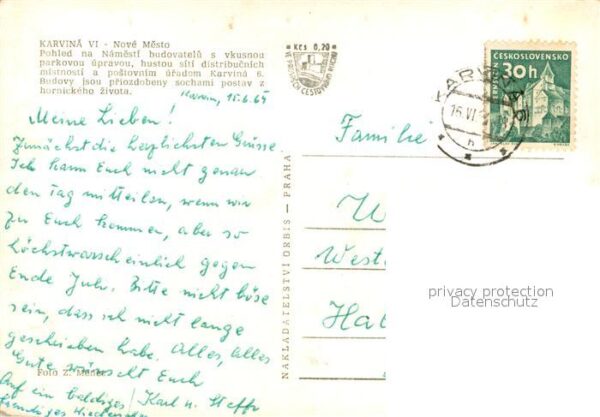 KARVINÁ VI - Nové Město
Pohled na Náměstí budovatelů s vkusnou
parkovou úpravou, hustou sítí distribučních
místností a poštovním úřadem Karviná 6.
Budovy jsou přiozdobeny sochami postav z
hornického života.
15.6.65
Meine Lieben!
Zunächst die herzlichsten Grüsse
Ich kann Euch nicht genau
den Tag mitteilen, wenn wir
zu Euch kommen, aber so
höchstwarscheinlich gegen
Ende July. Bitte nicht böse
sein, dass ich nicht lange
geschrieben habe. Alles, alles
Gute wünscht Euch
Foto Z.
Auf ein baldiges / Karl u. Steffi
freudiges Wiedersehen
NAKLADATELSTVÍ ORBIS — PRAHA
Kčs 0,20
KARVINÁ
ČESKOSLOVENSKO
30h
Familie
W
West
Hal
privacy protection
Datenschutz